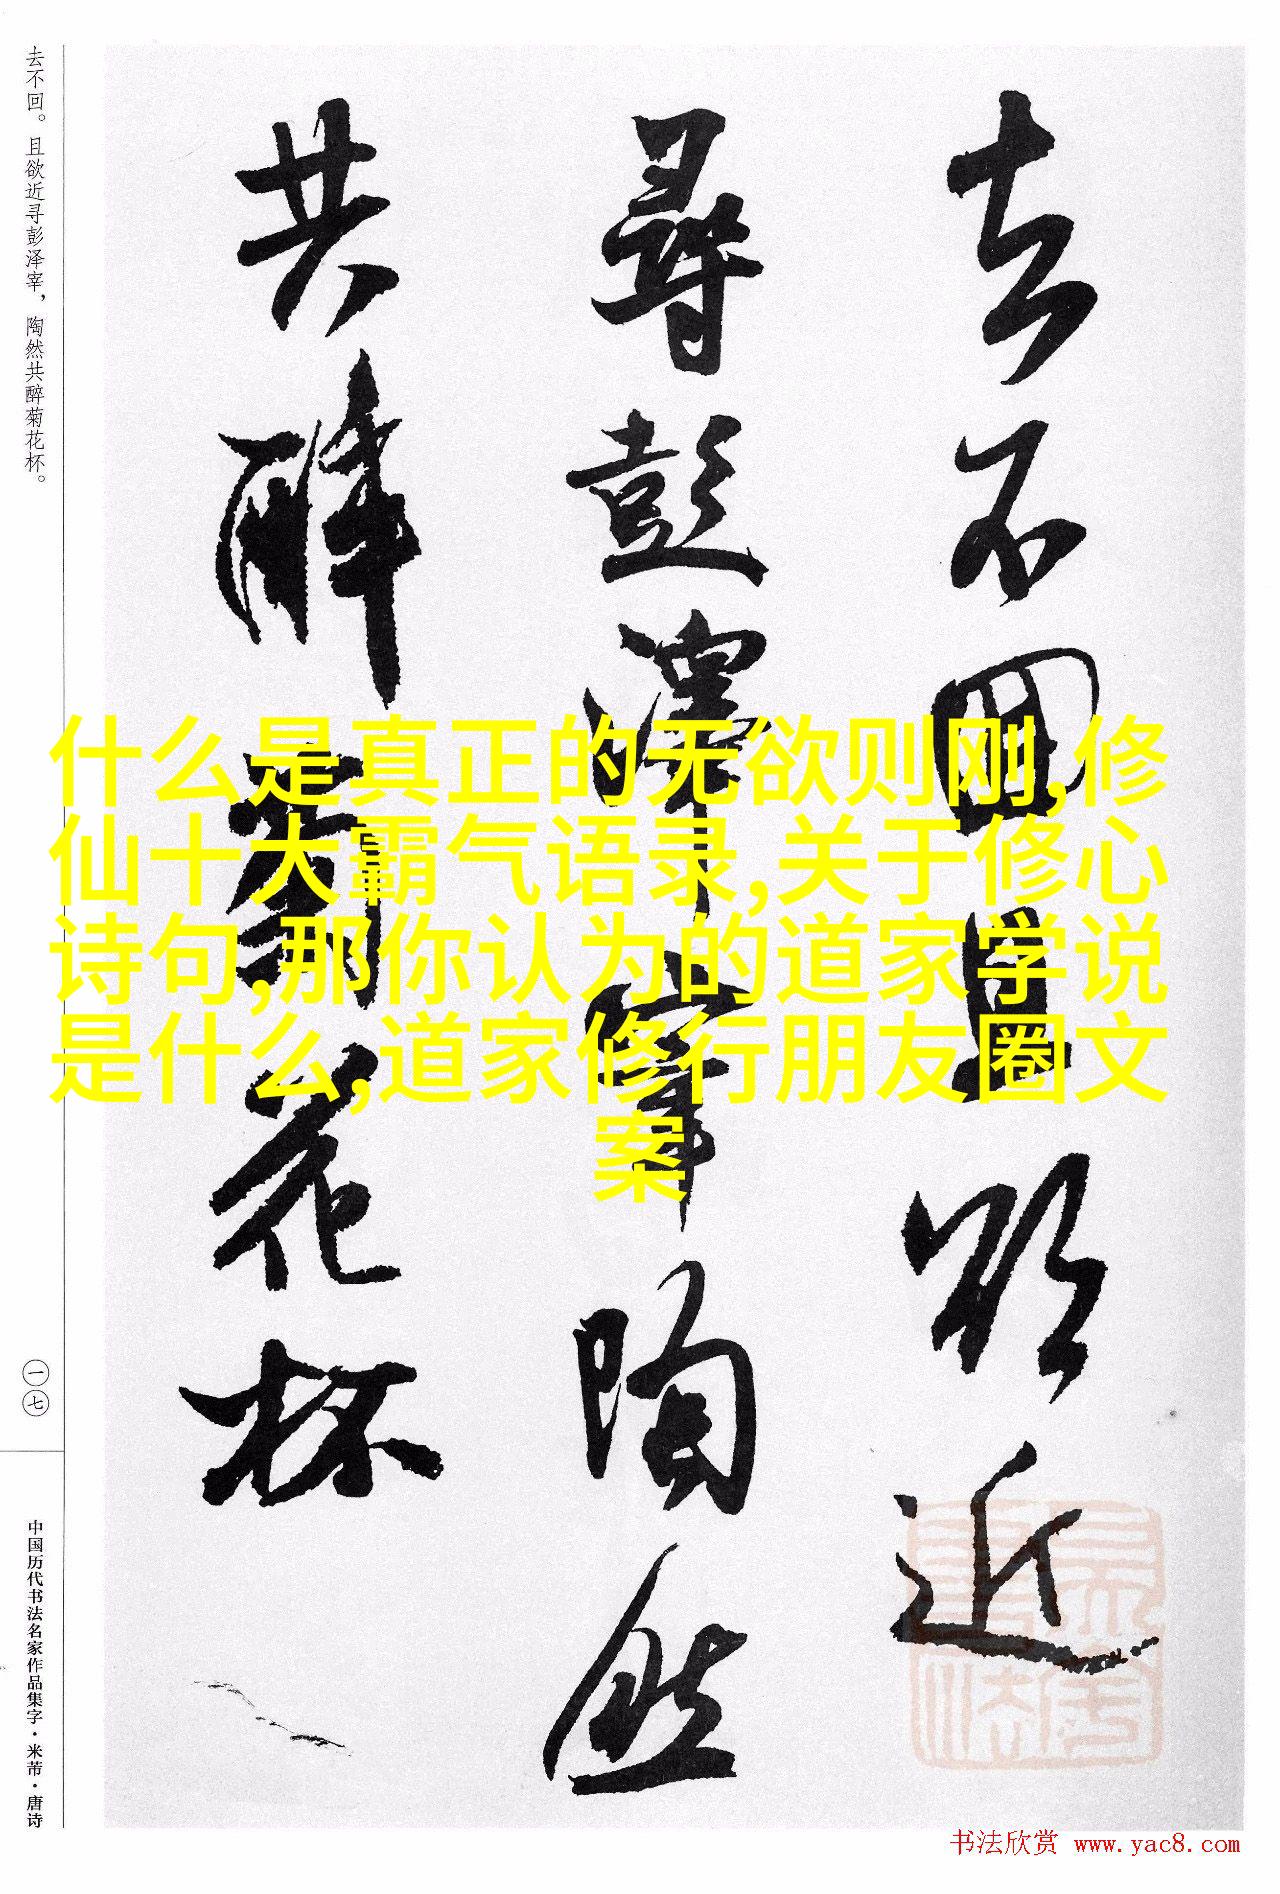 去不回且欲近
尋彭澤宰陶然
共醉菊花杯
去不回。且欲近寻彭泽宰，陶然共醉菊花杯。
一七
中国历代书法名家作品集字·米芾·唐诗
什么是真正的无欲则刚,修
仙十大霸气语录,关于修心
诗句,那你认为的道家学说
是什么,道家修行朋友圈文
案
书法欣赏 www.yac8.com